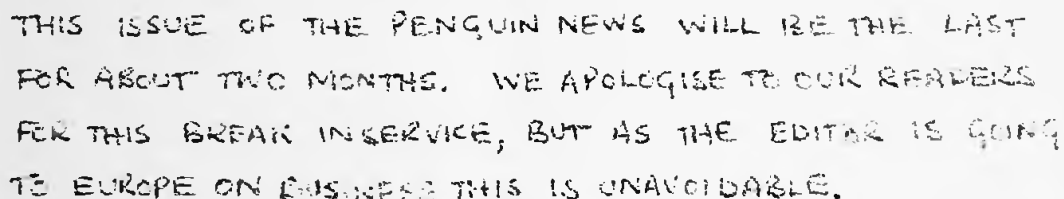 THIS ISSUE OF THE PENGUIN NEWS WILL BE THE LAST
FOR ABOUT TWO MONTHS. WE APOLOGISE TO OUR READERS
FOR THIS BREAK IN SERVICE, BUT AS THE EDITOR IS GOING
TO EUROPE ON BUSINESS THIS IS UNAVOIDABLE.